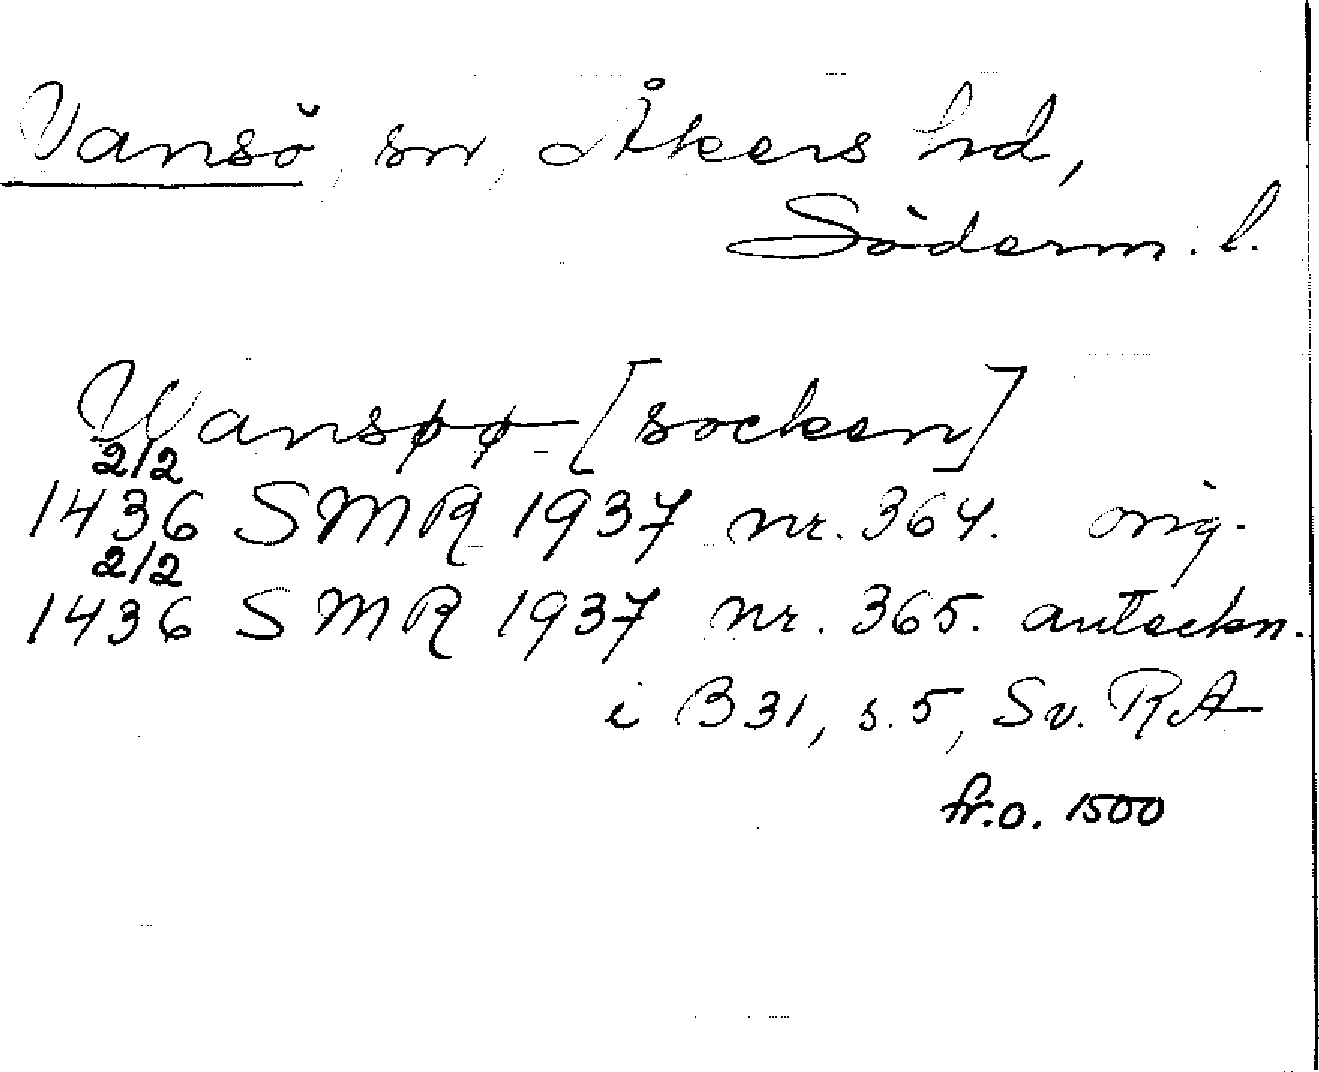 Vansö, sn, Åkers hd,
Söderm. l.
Wansøø [socken]
2/2
1436 SMR 1937 nr. 364. orig.
2/2
1436 SMR 1937 nr. 365. anteckn.
i B 31, s. 5, Sv. RA
fr.o. 1500